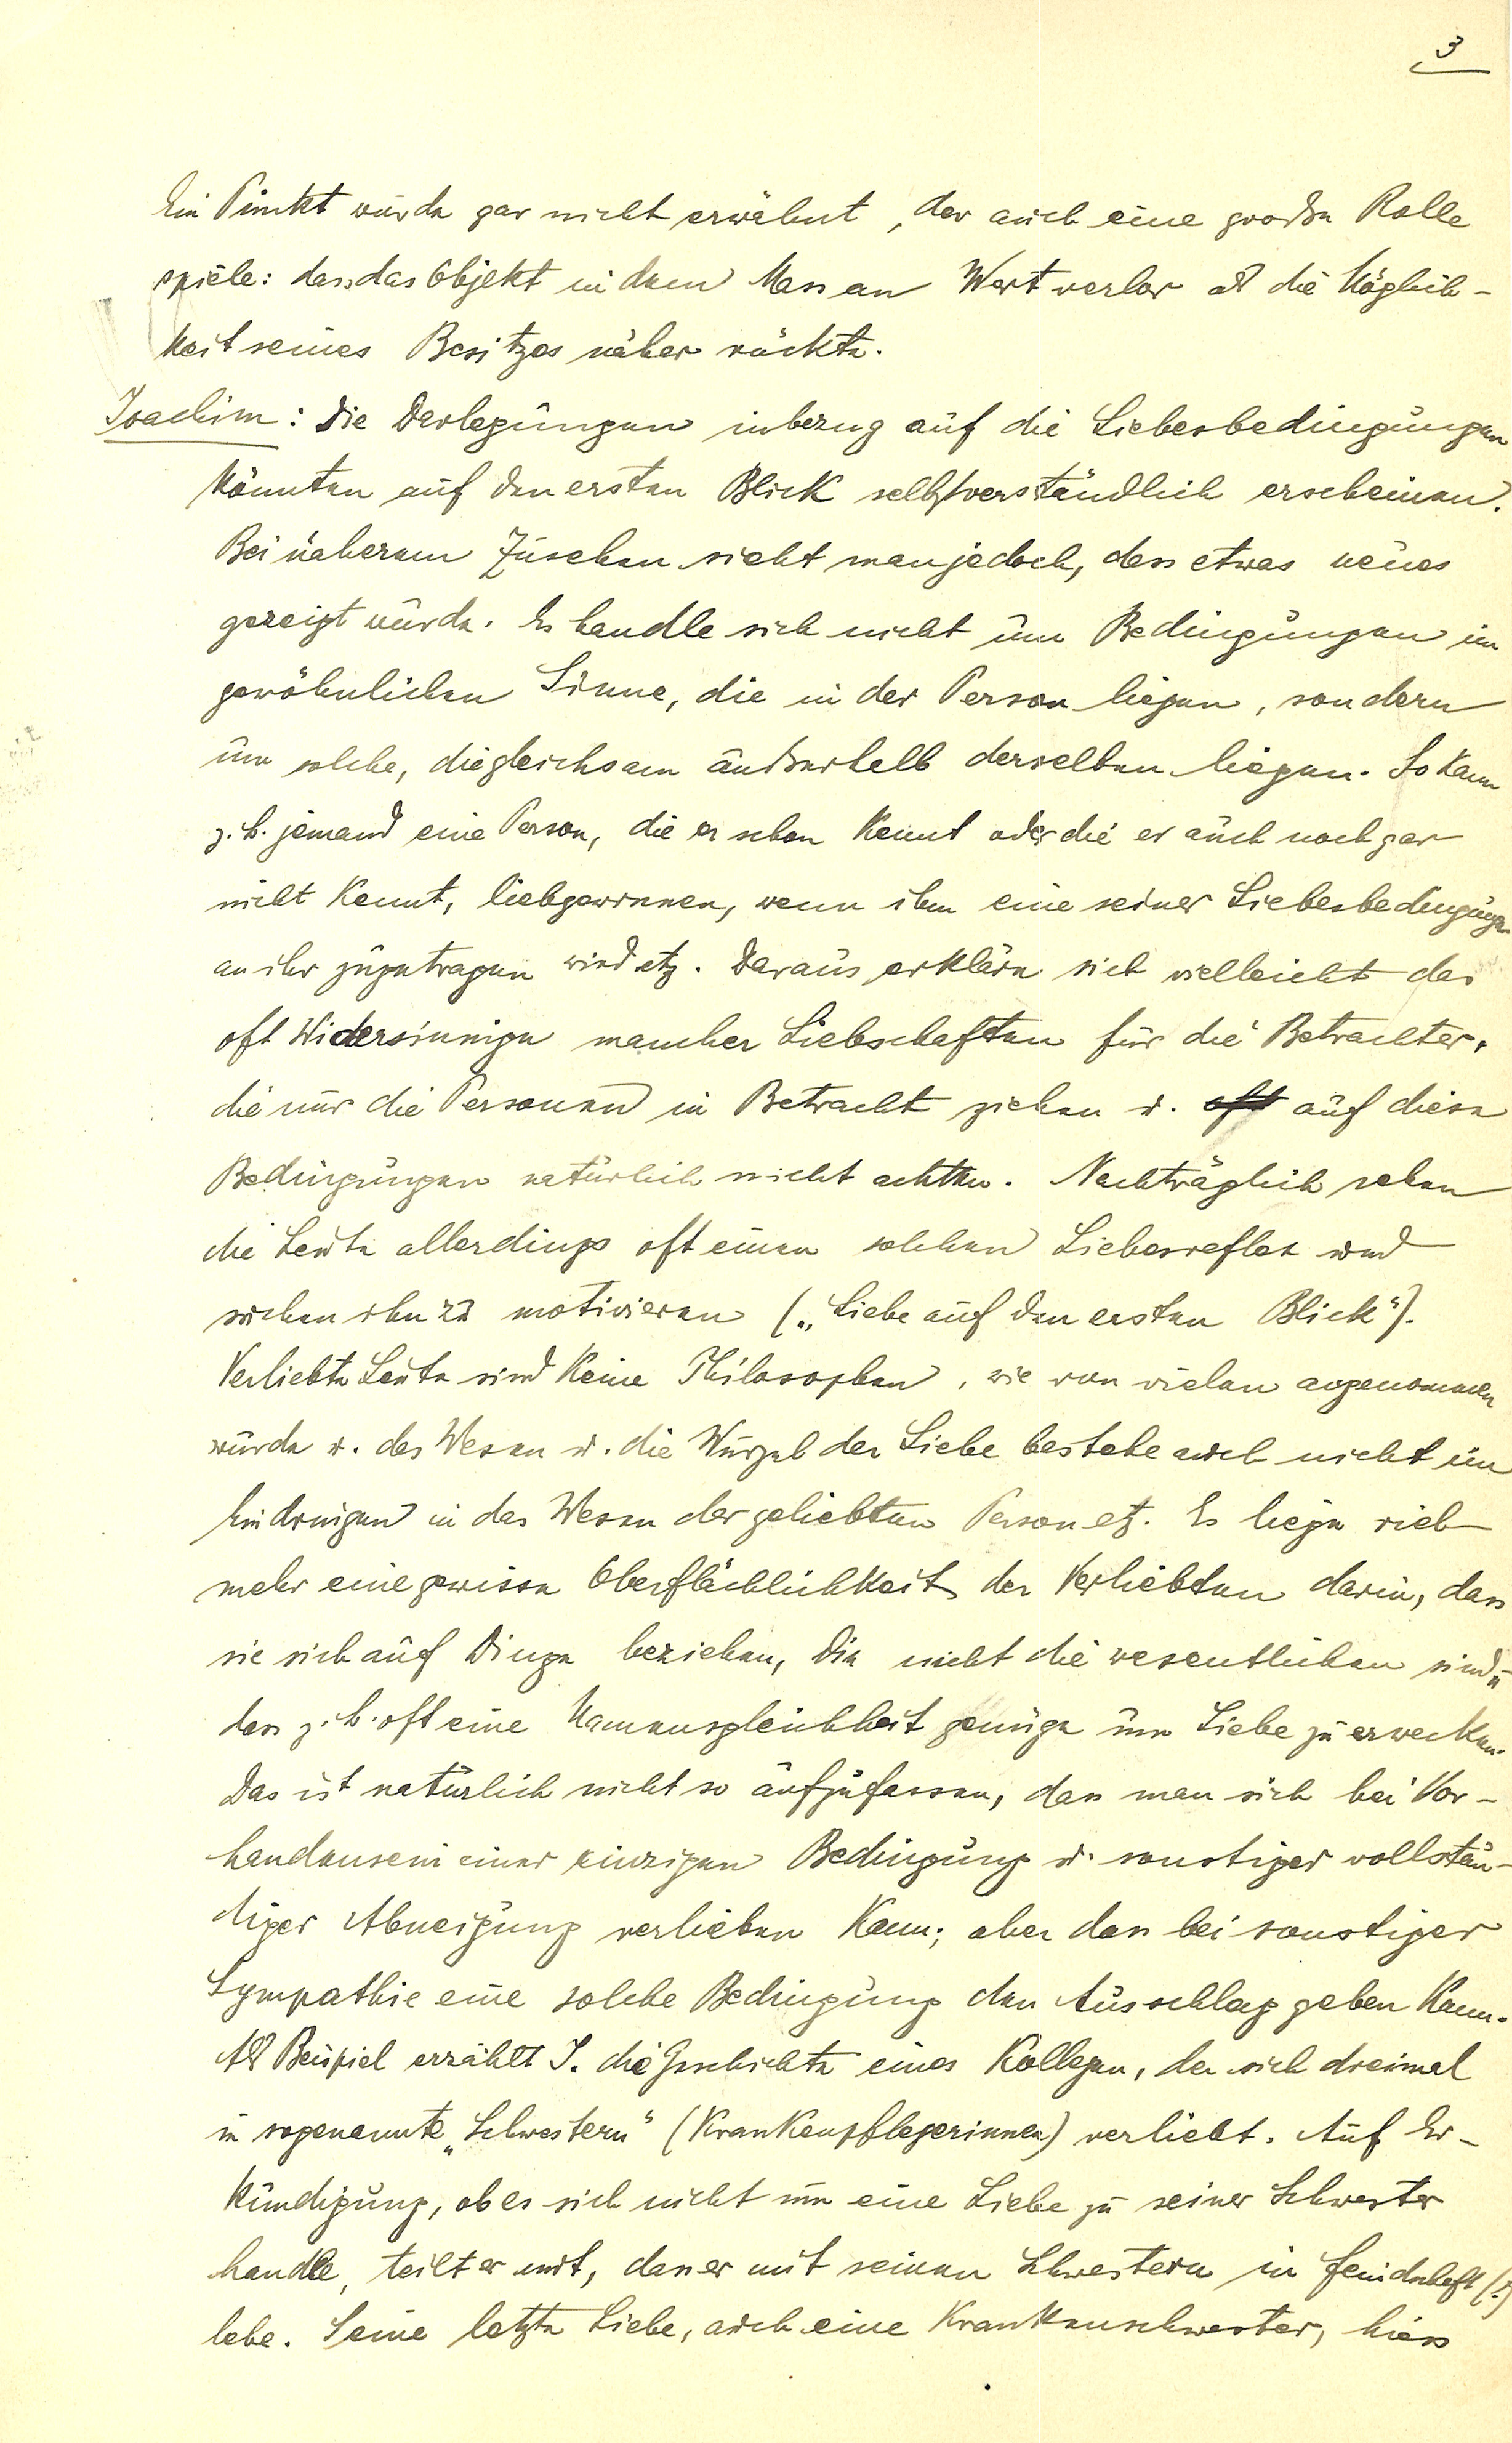 3
Ein Punkt wurde gar nicht erwähnt, der auch eine große Rolle
spiele: dass das Objekt in dem Mass an Wert verlor als die Möglich-
keit seines Besitzes näher rückte.
Joachim: Die Darlegungen inbezug auf die Liebesbedingungen
könnten auf den ersten Blick selbstverständlich erscheinen.
Bei näherem Zusehen sieht man jedoch, dass etwas neues
gezeigt wurde. Es handle sich nicht um Bedingungen im
gewöhnlichen Sinne, die in der Person liegen, sondern
um solche, die gleichsam außerhalb derselben liegen. So kann
z. B. jemand eine Person, die er schon kennt oder die er auch noch gar
nicht kennt, liebgewinnen, wenn ihm eine seiner Liebesbedingungen
an ihr zugetragen wird etz. Daraus erkläre sich vielleicht das
oft Widersinnige mancher Liebschaften für die Betrachter,
die nur die Personen in Betracht ziehen u. oft auf diese
Bedingungen natürlich nicht achten. Nachträglich sehen
die Leute allerdings oft einen solchen Liebesreflex und
suchen ihn zu motivieren („Liebe auf den ersten Blick“).
Verliebte Leute sind keine Philosophen, wie von vielen angenommen
wurde u. das Wesen u. die Wurzel der Liebe bestehe auch nicht im
Eindringen in das Wesen der geliebten Person etz. Es liege viel-
mehr eine gewisse Oberflächlichkeit der Verliebten darin, dass
sie sich auf Dinge beziehen, die nicht die wesentlichen sind u.
dass z. B. oft eine Namensgleichheit genüge um Liebe zu erwecken.
Das ist natürlich nicht so aufzufassen, dass man sich bei Vor-
handensein einer einzigen Bedingung u. sonstiger vollstän-
diger Abneigung verlieben kann; aber dass bei sonstiger
Sympathie eine solche Bedingung den Ausschlag geben kann.
Als Beispiel erzählt J. die Geschichte eines Kollegen, der sich dreimal
in sogenannte „Schwestern“ (Krankenpflegerinnen) verliebt. Auf Er-
kundigung, ob es sich nicht um eine Liebe zu seiner Schwester
handle, teilt er mit, dass er mit seinen Schwestern in Feindschaft (!)
lebe. Seine letzte Liebe, auch eine Krankenschwester, hiess